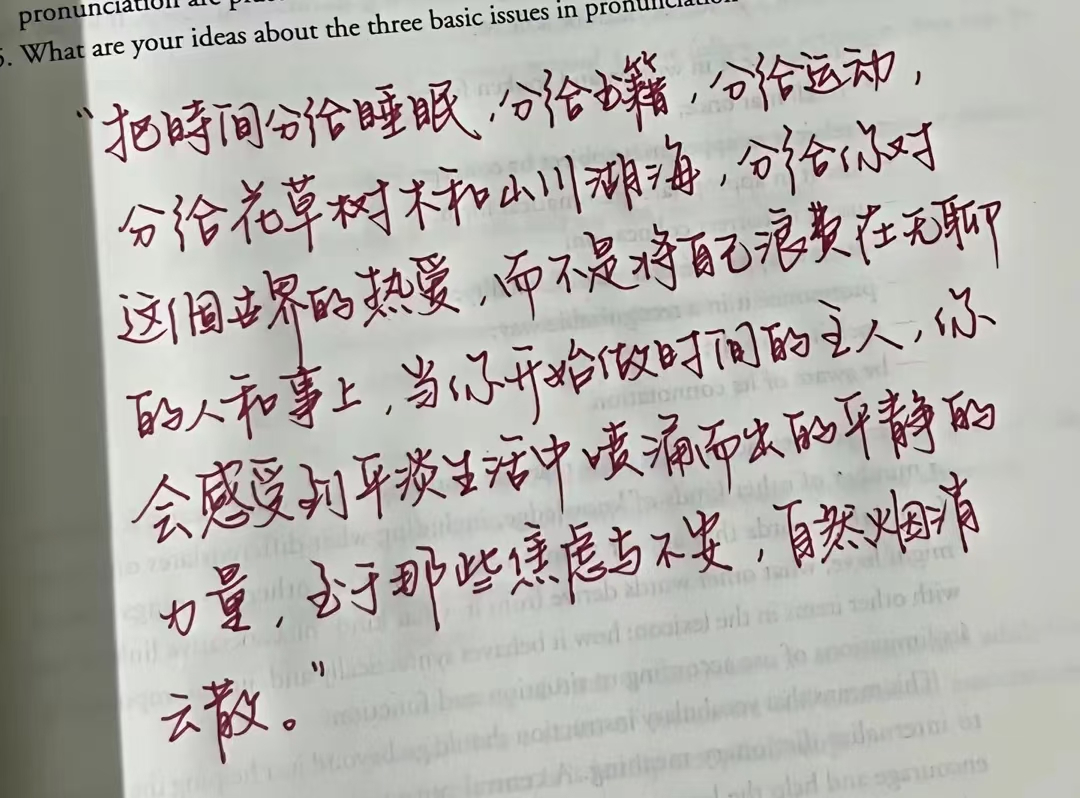 pronunciation are
5. What are your ideas about the three basic issues in pronunciation
“把時间分给睡眠,分给书籍,分给运动,
分给花草树木和山川湖海,分给你对
这個世界的热爱,而不是将自己浪费在无聊
的人和事上,当你开始做时间的主人,你
会感受到平淡生活中喷涌而出的平静的
力量,至于那些焦虑与不安,自然烟消
云散。”